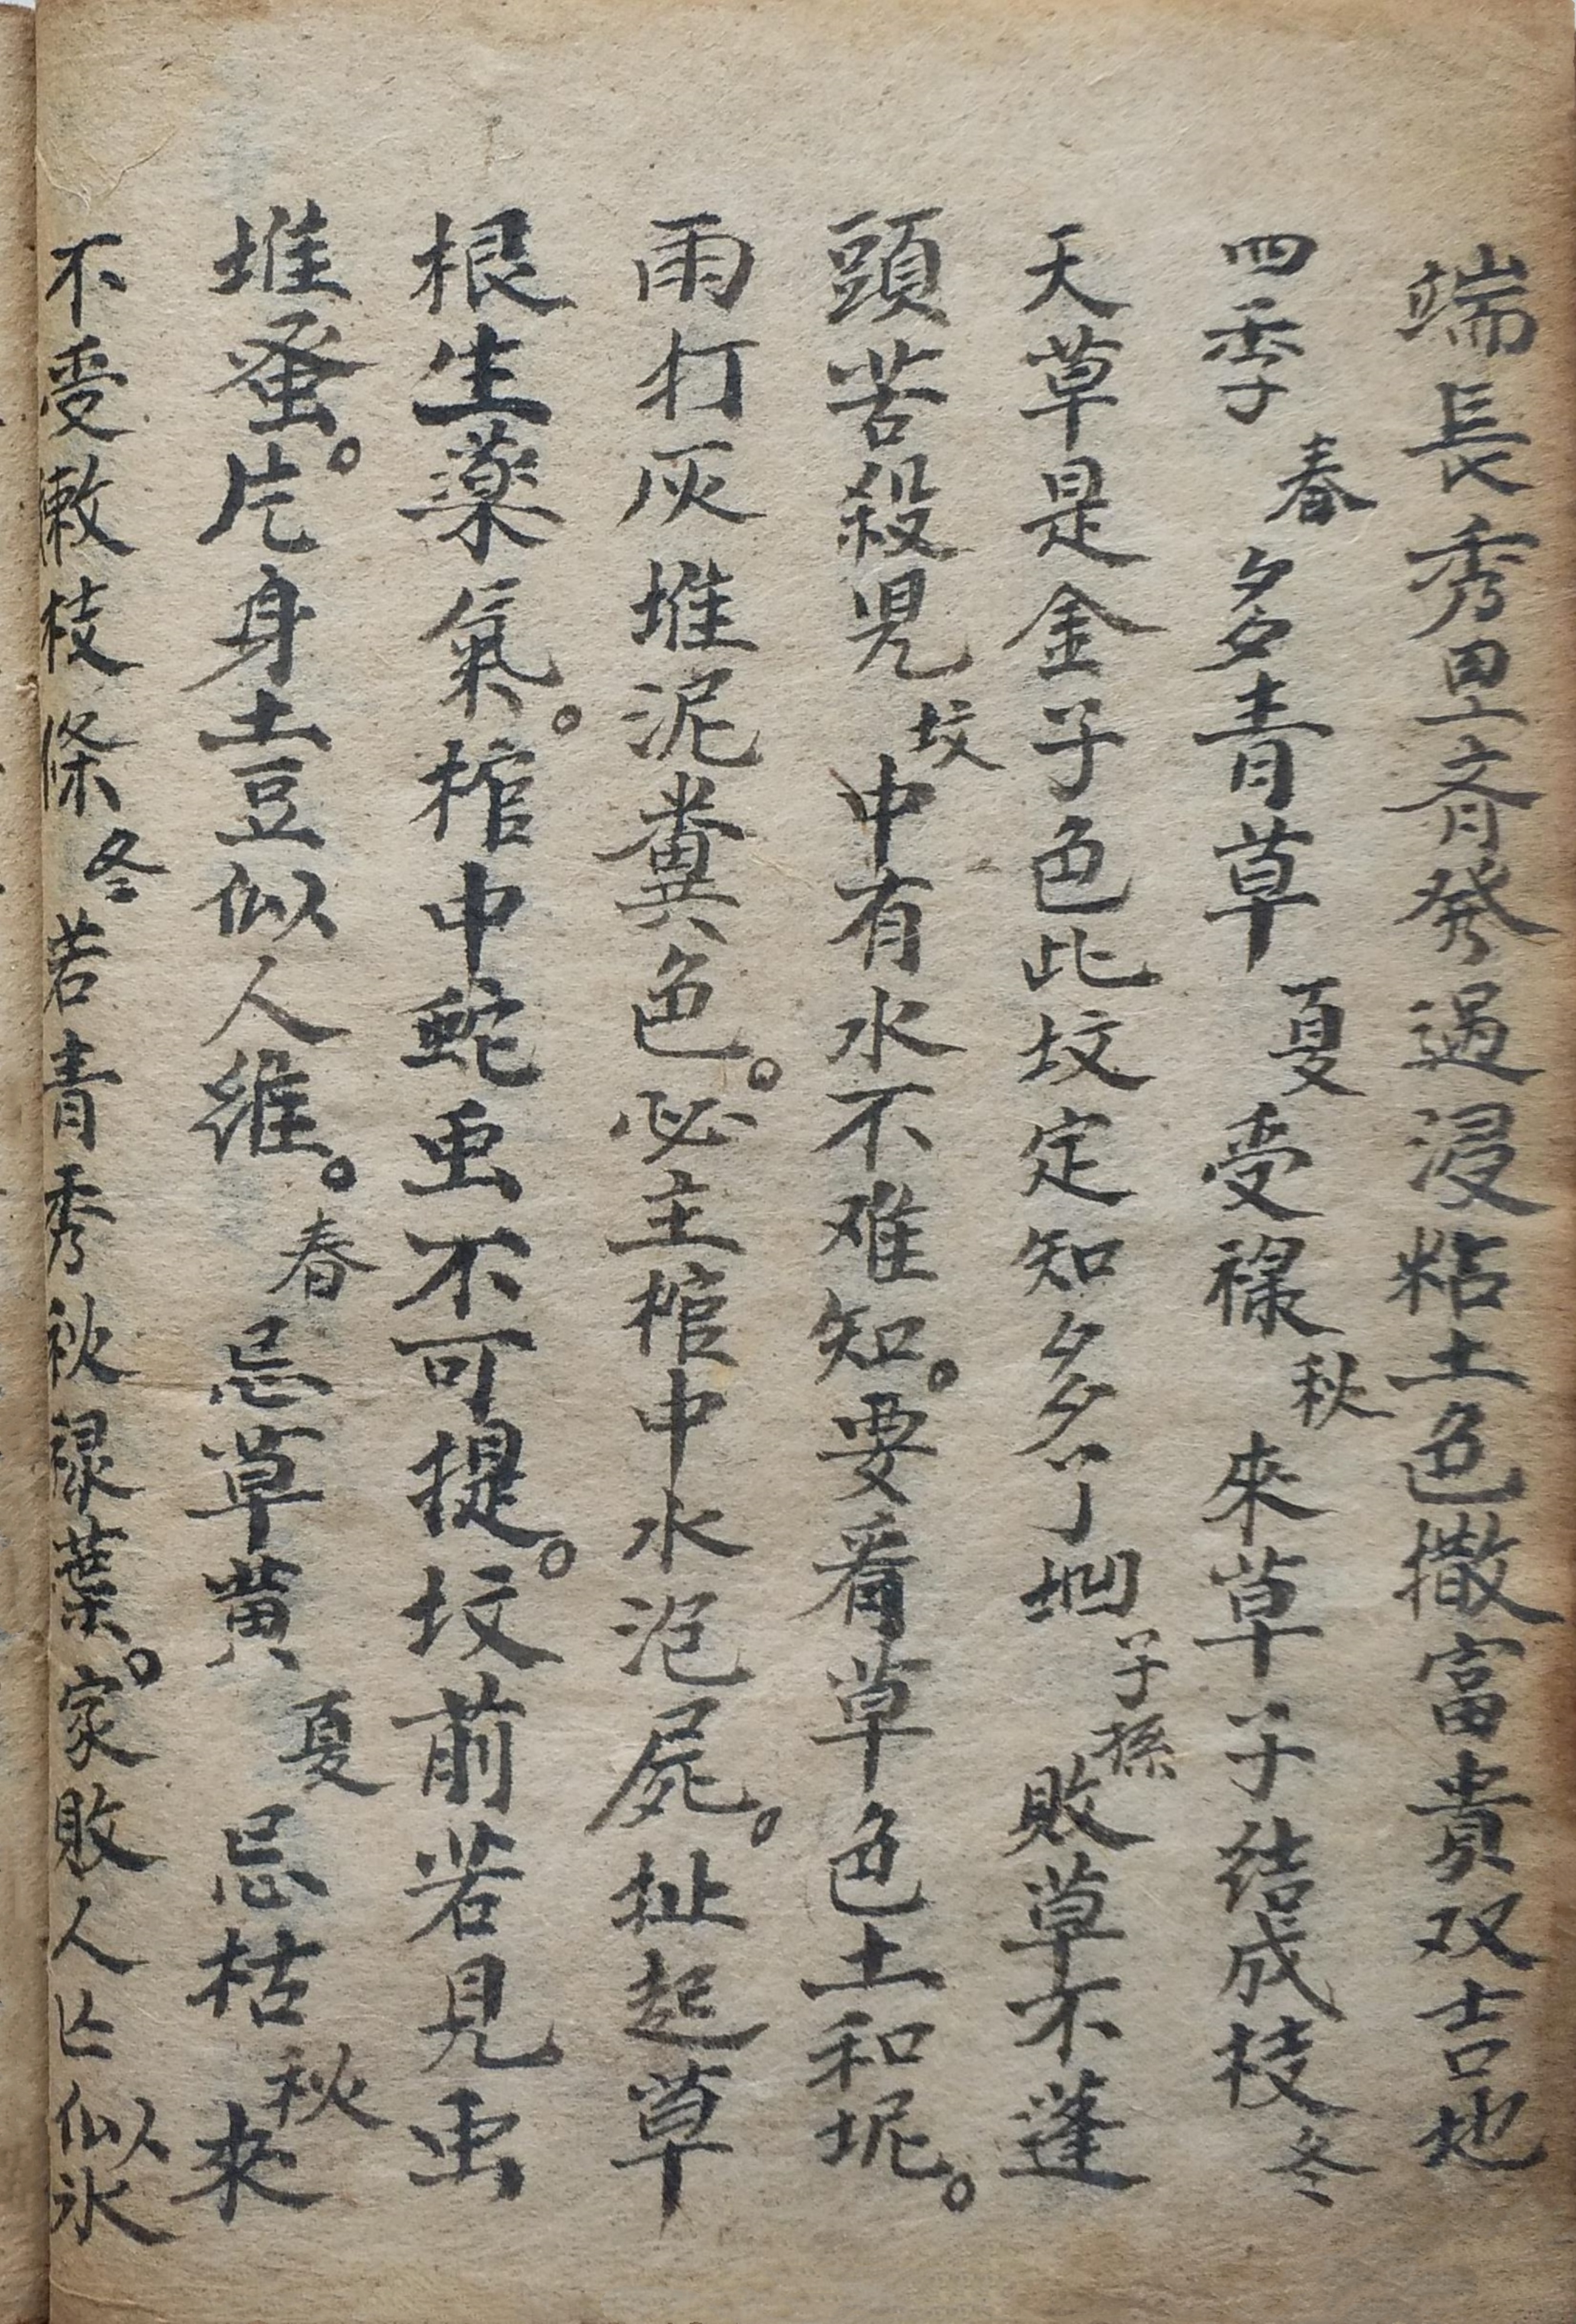 端長秀里齐發過浸粘土色撒富貴双吉地
四季春多青草夏受禄秋來草子结成枝冬
天草是金子色此坟定知多了凹子孫敗草不蓬
頭苦殺児坟中有水不难知。要看草色土和坭。
雨打灰堆泥糞色。必主棺中水泡屍。扯起草
根生藥氣。棺中蛇虫不可提。坟前若見虫
堆蚤。片身土豆似人维。春忌草黄夏忌枯秋來
不受嫩枝條冬若青秀秋禄葉。家敗人亾似似氷